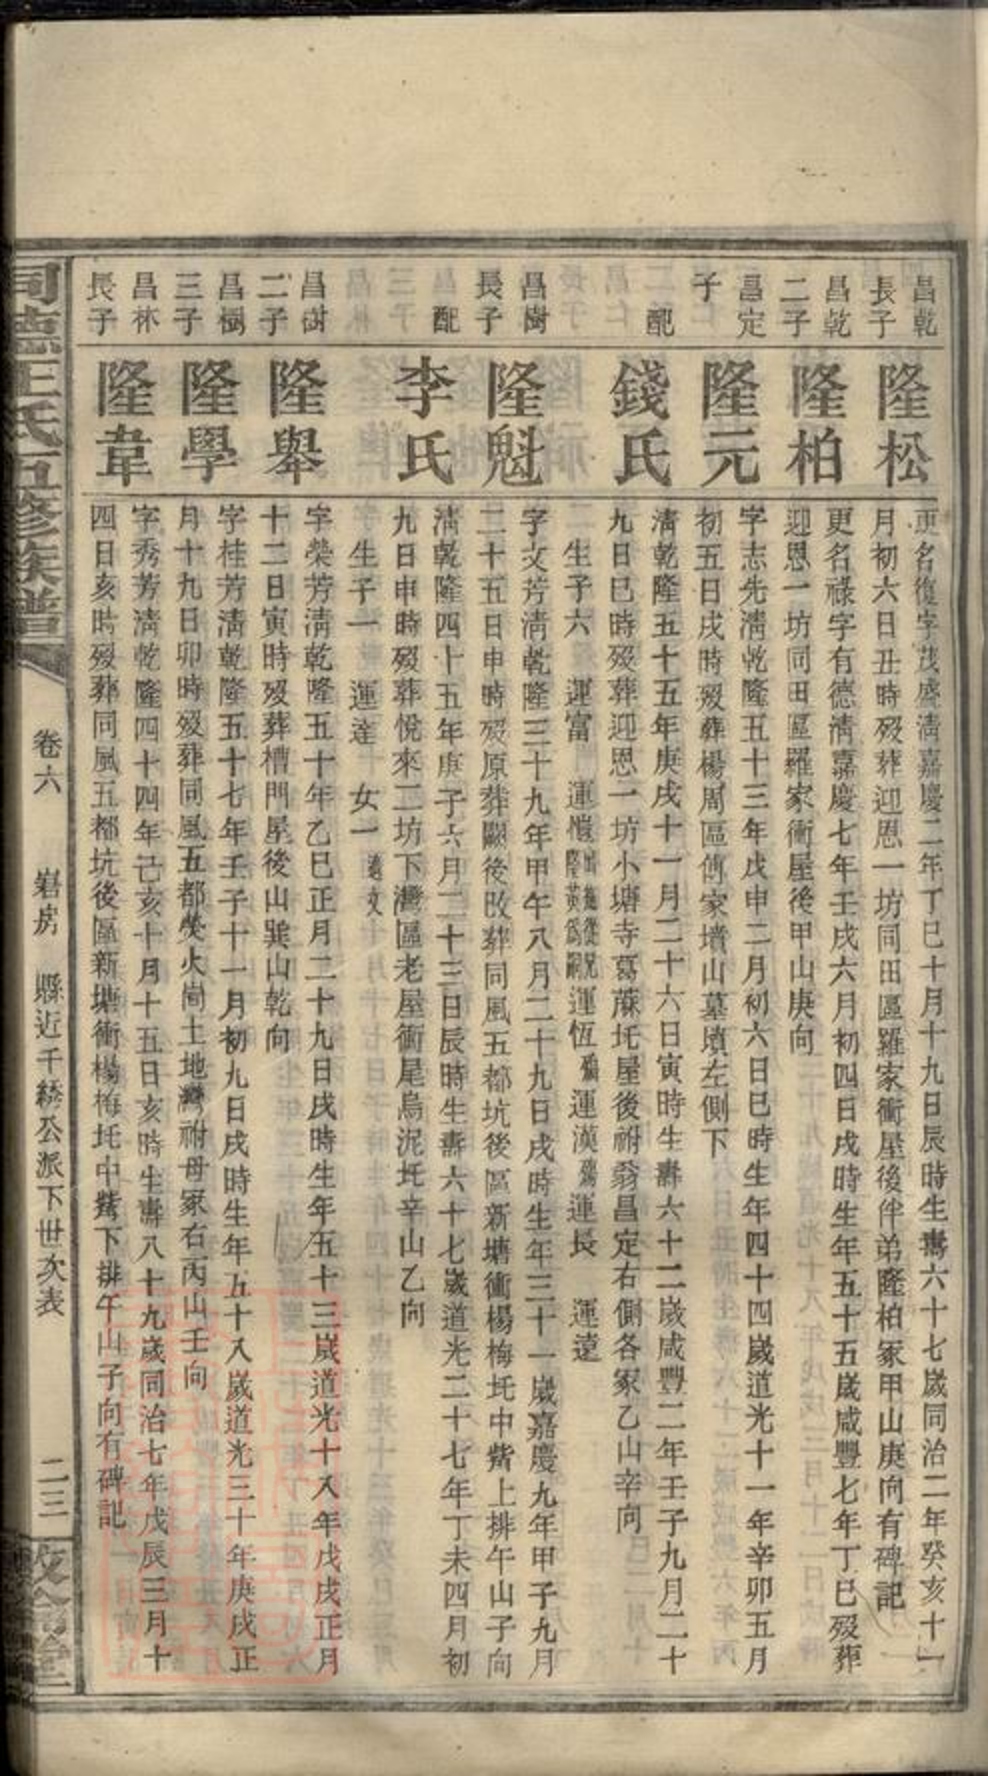 昌乾
長子
隆松
更名復字茂盛清嘉慶二年丁巳十月十九日辰時生壽六十七歲同治二年癸亥十一
月初六日丑時歿葬迎恩一坊同田區羅家衝屋後伴弟隆柏冢甲山庚向有碑記
昌乾
二子
隆柏
更名祿字有德清嘉慶七年壬戌六月初四日戌時生年五十五歲咸豐七年丁巳歿葬
迎恩一坊同田區羅家衝屋後甲山庚向
昌定
子
隆元
字志先清乾隆五十三年戊申二月初六日巳時生年四十四歲道光十一年辛卯五月
初五日戌時歿葬楊周區傅家墳山墓墳左側下
配
錢氏
清乾隆五十五年庚戌十一月二十六日寅時生壽六十二歲咸豐二年壬子九月二十
九日巳時歿葬迎恩一坊小塘寺葛蔴圫屋後祔翁昌定右側各冢乙山辛向
生子六 運富 運愷 運恆 運漢 運長 運遠
昌樹
長子
隆魁
字文芳清乾隆三十九年甲午八月二十九日戌時生年三十一歲嘉慶九年甲子九月
二十五日申時歿原葬闕後改葬同風五都坑後區新塘衝楊梅圫中觜上排午山子向
配
李氏
清乾隆四十五年庚子六月二十三日辰時生壽六十七歲道光二十七年丁未四月初
九日申時歿葬悅來二坊下灣區老屋衝尾烏泥圫辛山乙向
生子一 運達 女一 適文
昌樹
二子
隆舉
字榮芳清乾隆五十年乙巳正月二十九日戌時生年五十三歲道光十八年戊戌正月
十二日寅時歿葬槽門屋後山巽山乾向
昌樹
三子
隆學
字桂芳清乾隆五十七年壬子十一月初九日戌時生年五十八歲道光三十年庚戌正
月十九日卯時歿葬同風五都熒火崙土地灣祔母冢右丙山壬向
昌林
長子
隆韋
字秀芳清乾隆四十四年己亥十月十五日亥時生壽八十九歲同治七年戊辰三月十
四日亥時歿葬同風五都坑後區新塘衝楊梅圫中觜下排午山子向有碑記
王氏五修族譜
卷六 岩房 縣近千 公派下世次表
二三